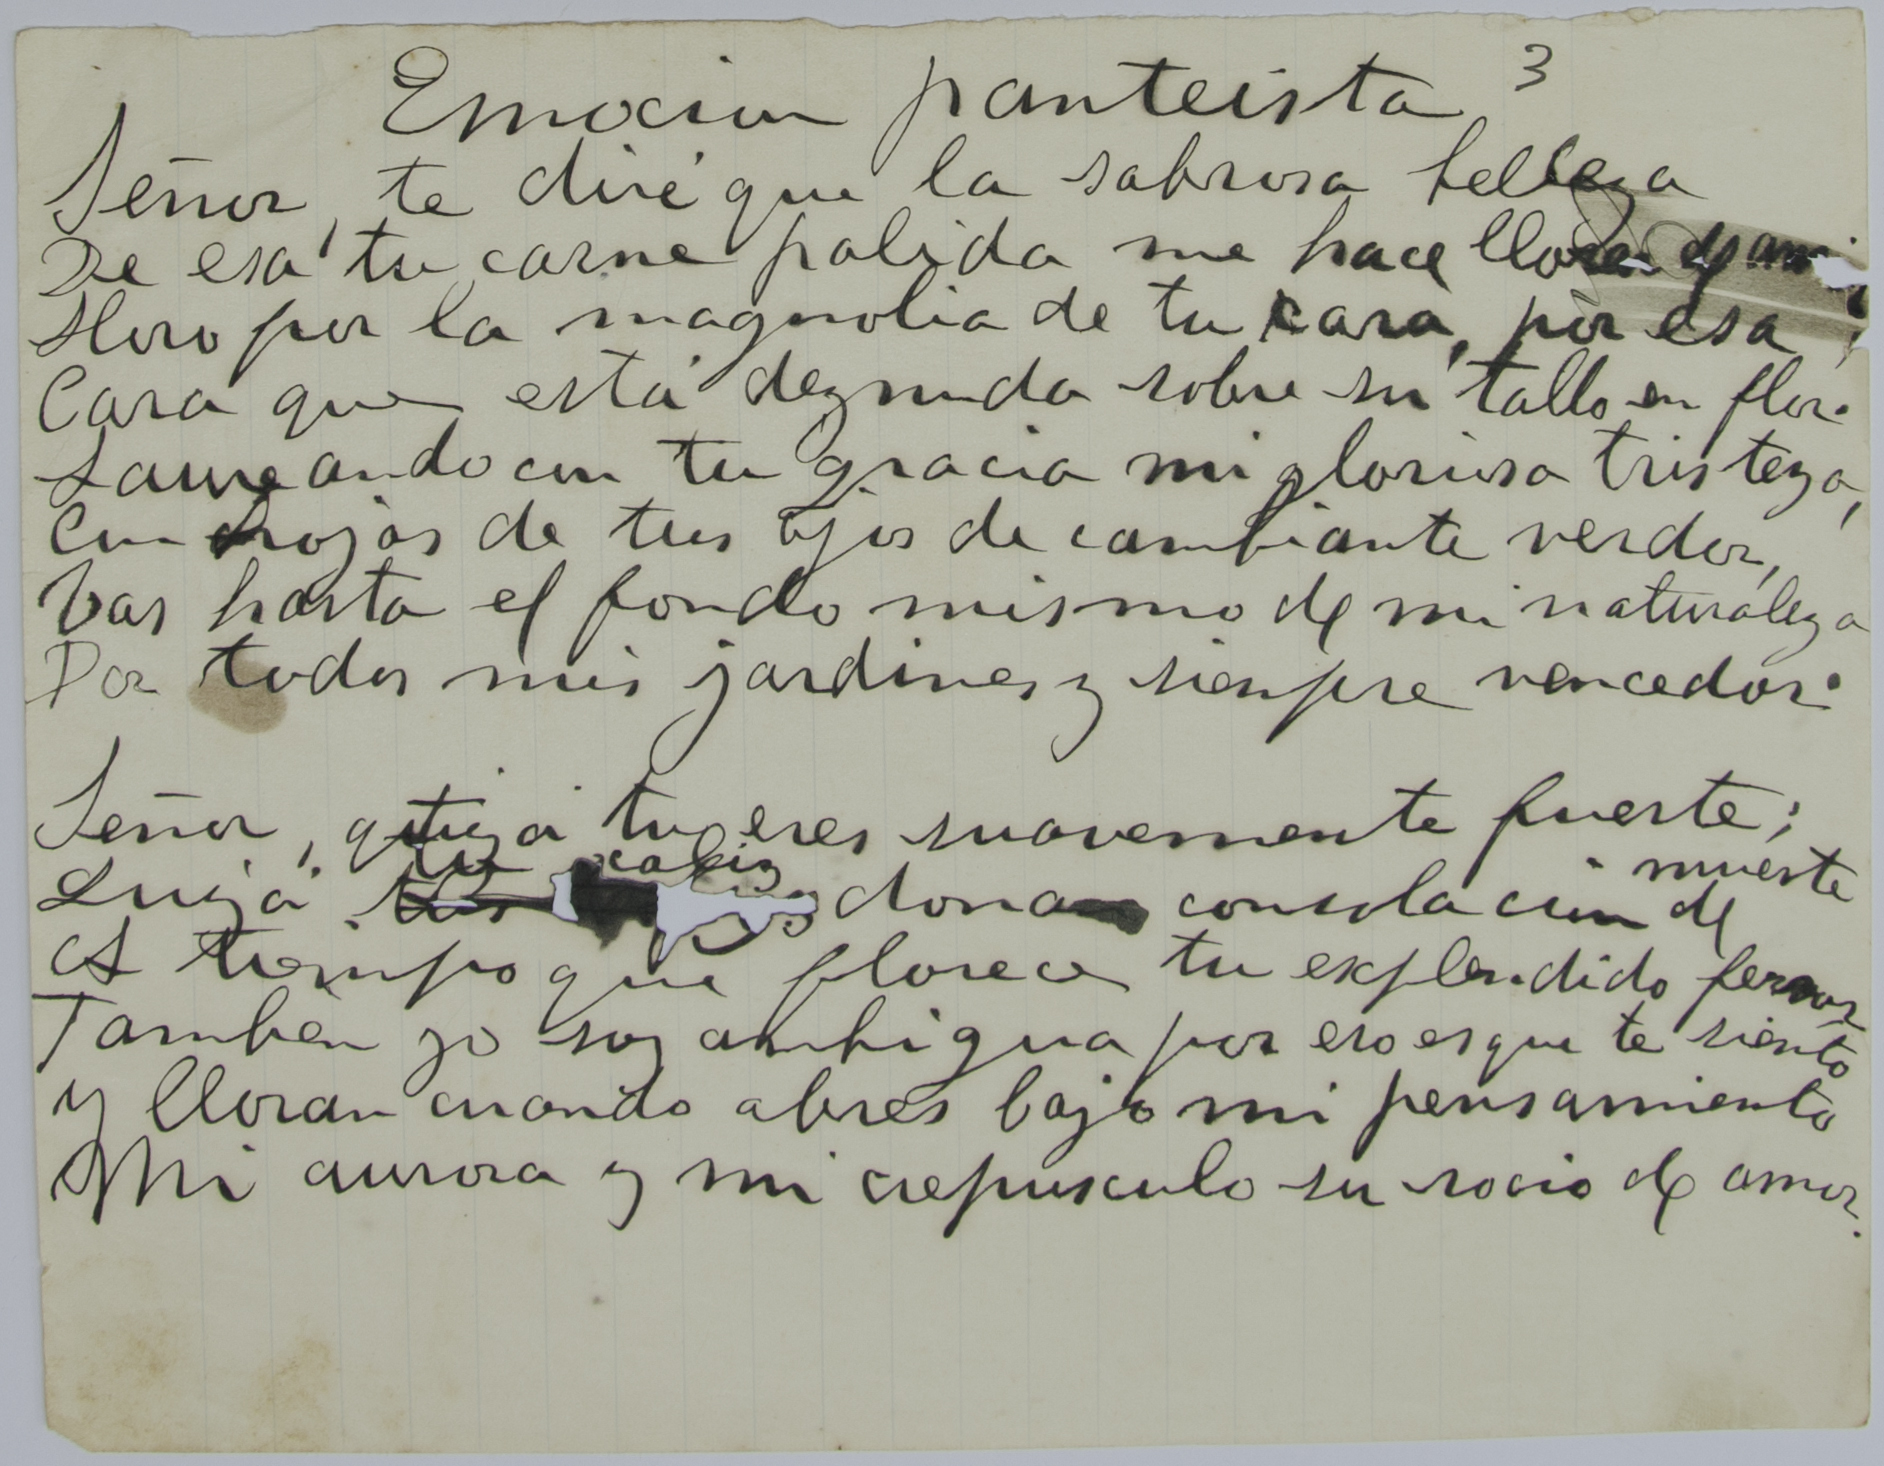 Emocion panteista 3
Señor, te diré que la sabrosa belleza
De esa tu carne palida me hace llorar de
Lloro por la magnolia de tu cara, por esa
Cara que está deznuda sobre su tallo en flor.
Laureando con tu gracia mi gloriosa tristeza,
Con hojas de tus ojos de cambiante verdor,
Vas hasta el fondo mismo de mi naturaleza
Por todos mis jardines y sienpre vencedor.
Señor, quizá tu eres suavemente fuerte;
tu caliz muerte
Quizá dona consolación de
Al tiempo que florece tu explendido fervor
Tambien yo soy ambigua por eso es que te siento
y lloran cuando abres bajo mi pensamiento
Mi aurora y mi crepusculo su rocio de amor.